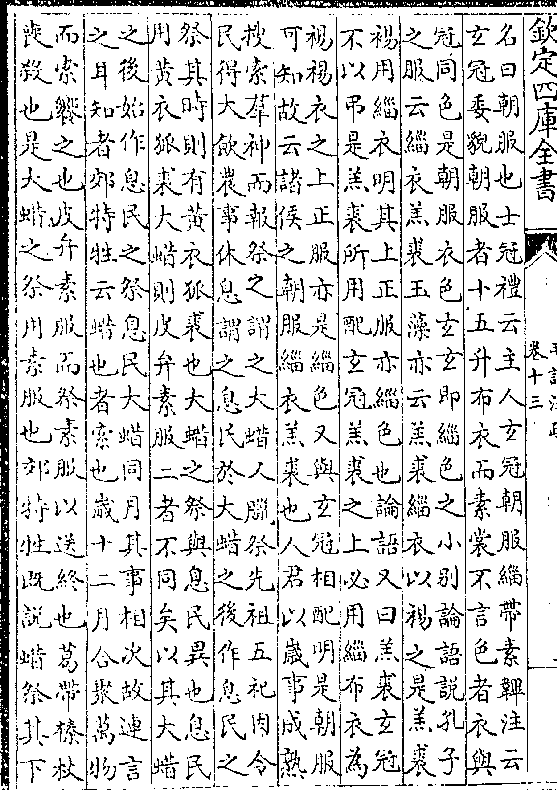 欽定四庫全書
卷十三
名曰朝服也士冠禮云主人玄冠朝服緇帶素韠注云
玄冠委貌朝服者十五升布衣而素裳不言色者衣與
冠同色是朝服衣色玄玄即緇色之小别論語說孔子
之服云緇衣羔裘玉藻亦云羔裘緇衣以裼之是羔裘
裼用緇衣明其上正服亦緇色也論語又曰羔裘玄冠
不以弔是羔裘所用配玄冠羔裘之上必用緇布衣為
裼裼衣之上正服亦是緇色又與玄冠相配明是朝服
可知故云諸侯之朝服緇衣羔裘也人君以歲事成熟
搜索羣神而報祭之謂之大蜡人臘祭先祖五祀因令
民得大飲農事休息謂之息民於大蜡之後作息民之
祭其時則有黃衣狐裘也大蜡之祭與息民異也息民
用黃衣狐裘大蜡則皮弁素服二者不同矣以其大蜡
之後始作息民之祭息民大蜡同月其事相次故連言
之耳知者郊特牲云蜡也者索也歲十二月合聚萬物
而索饗之也皮弁素服而祭素服以送終也葛帶榛杖
喪殺也是大蜡之祭用素服也郊特牲既說蜡祭其下